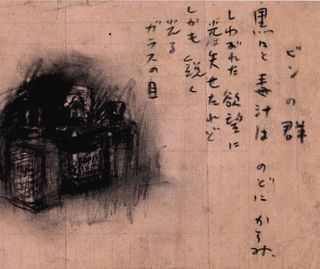 ビンの群
黒々と毒汁は のどにからみ、
しわがれた欲望に
光は失せたれど
しかも鋭く
光る
ガラスの目